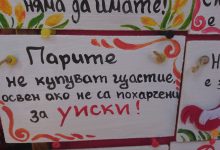 няма да имате!
Парите
не купуват щастие,
освен ако не са похарчени
за уиски!
Н
е з